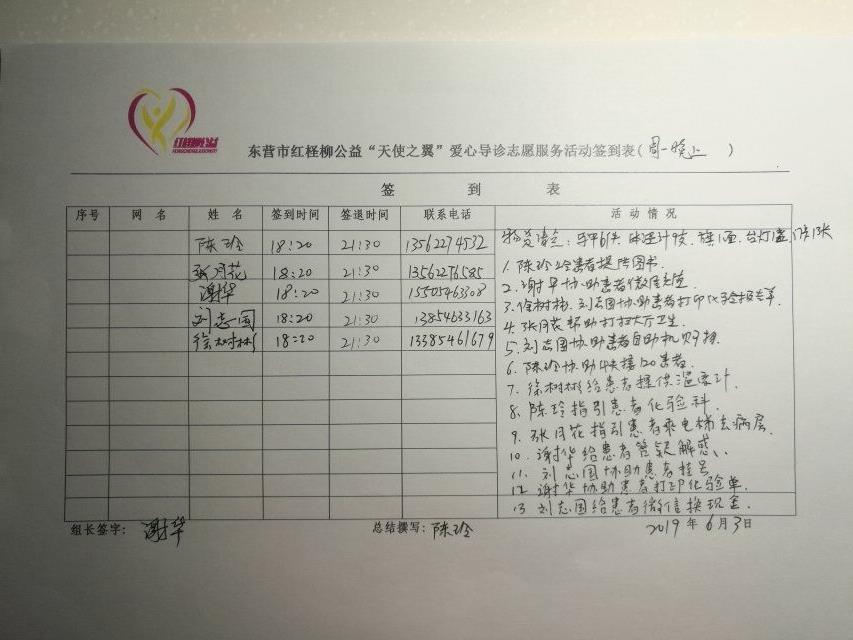 红柽柳公益
东营市红柽柳公益“天使之翼”爱心导诊志愿服务活动签到表(周一晚上)
签到表
序号 网名 姓名 签到时间 签退时间 联系电话 活动情况
陈玲 18:20 21:30 13562274532
张月花 18:20 21:30 13562276585
谢华 18:20 21:30 15505463308
刘志国 18:20 21:30 13854633163
徐树彬 18:20 21:30 13385461679
1. 陈玲给患者提供图书.
2. 谢华协助患者微信充值
3. 徐树彬、刘志国协助患者打印化验报告单
4. 张月花帮助打扫大厅卫生
5. 刘志国协助患者自助机
6. 陈玲协助 接120患者.
7. 徐树彬给患者提供温度计.
8. 陈玲指引患者化验科.
9. 张月花指引患者乘电梯去病层.
10. 谢华给患者答疑解惑、
11. 刘志国协助患者挂号
12. 谢华协助患者打印化验单.
13 刘志国给患者微信换现金.
组长签字: 谢华 总结撰写: 陈玲 2019年6月3日